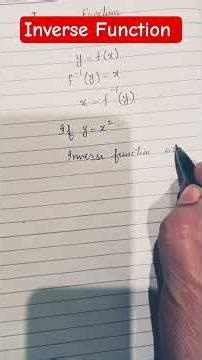 Inverse Function
Functions
y = f(x)
f⁻¹(y) = x
x = f⁻¹(y)
If y = x²
Inverse function